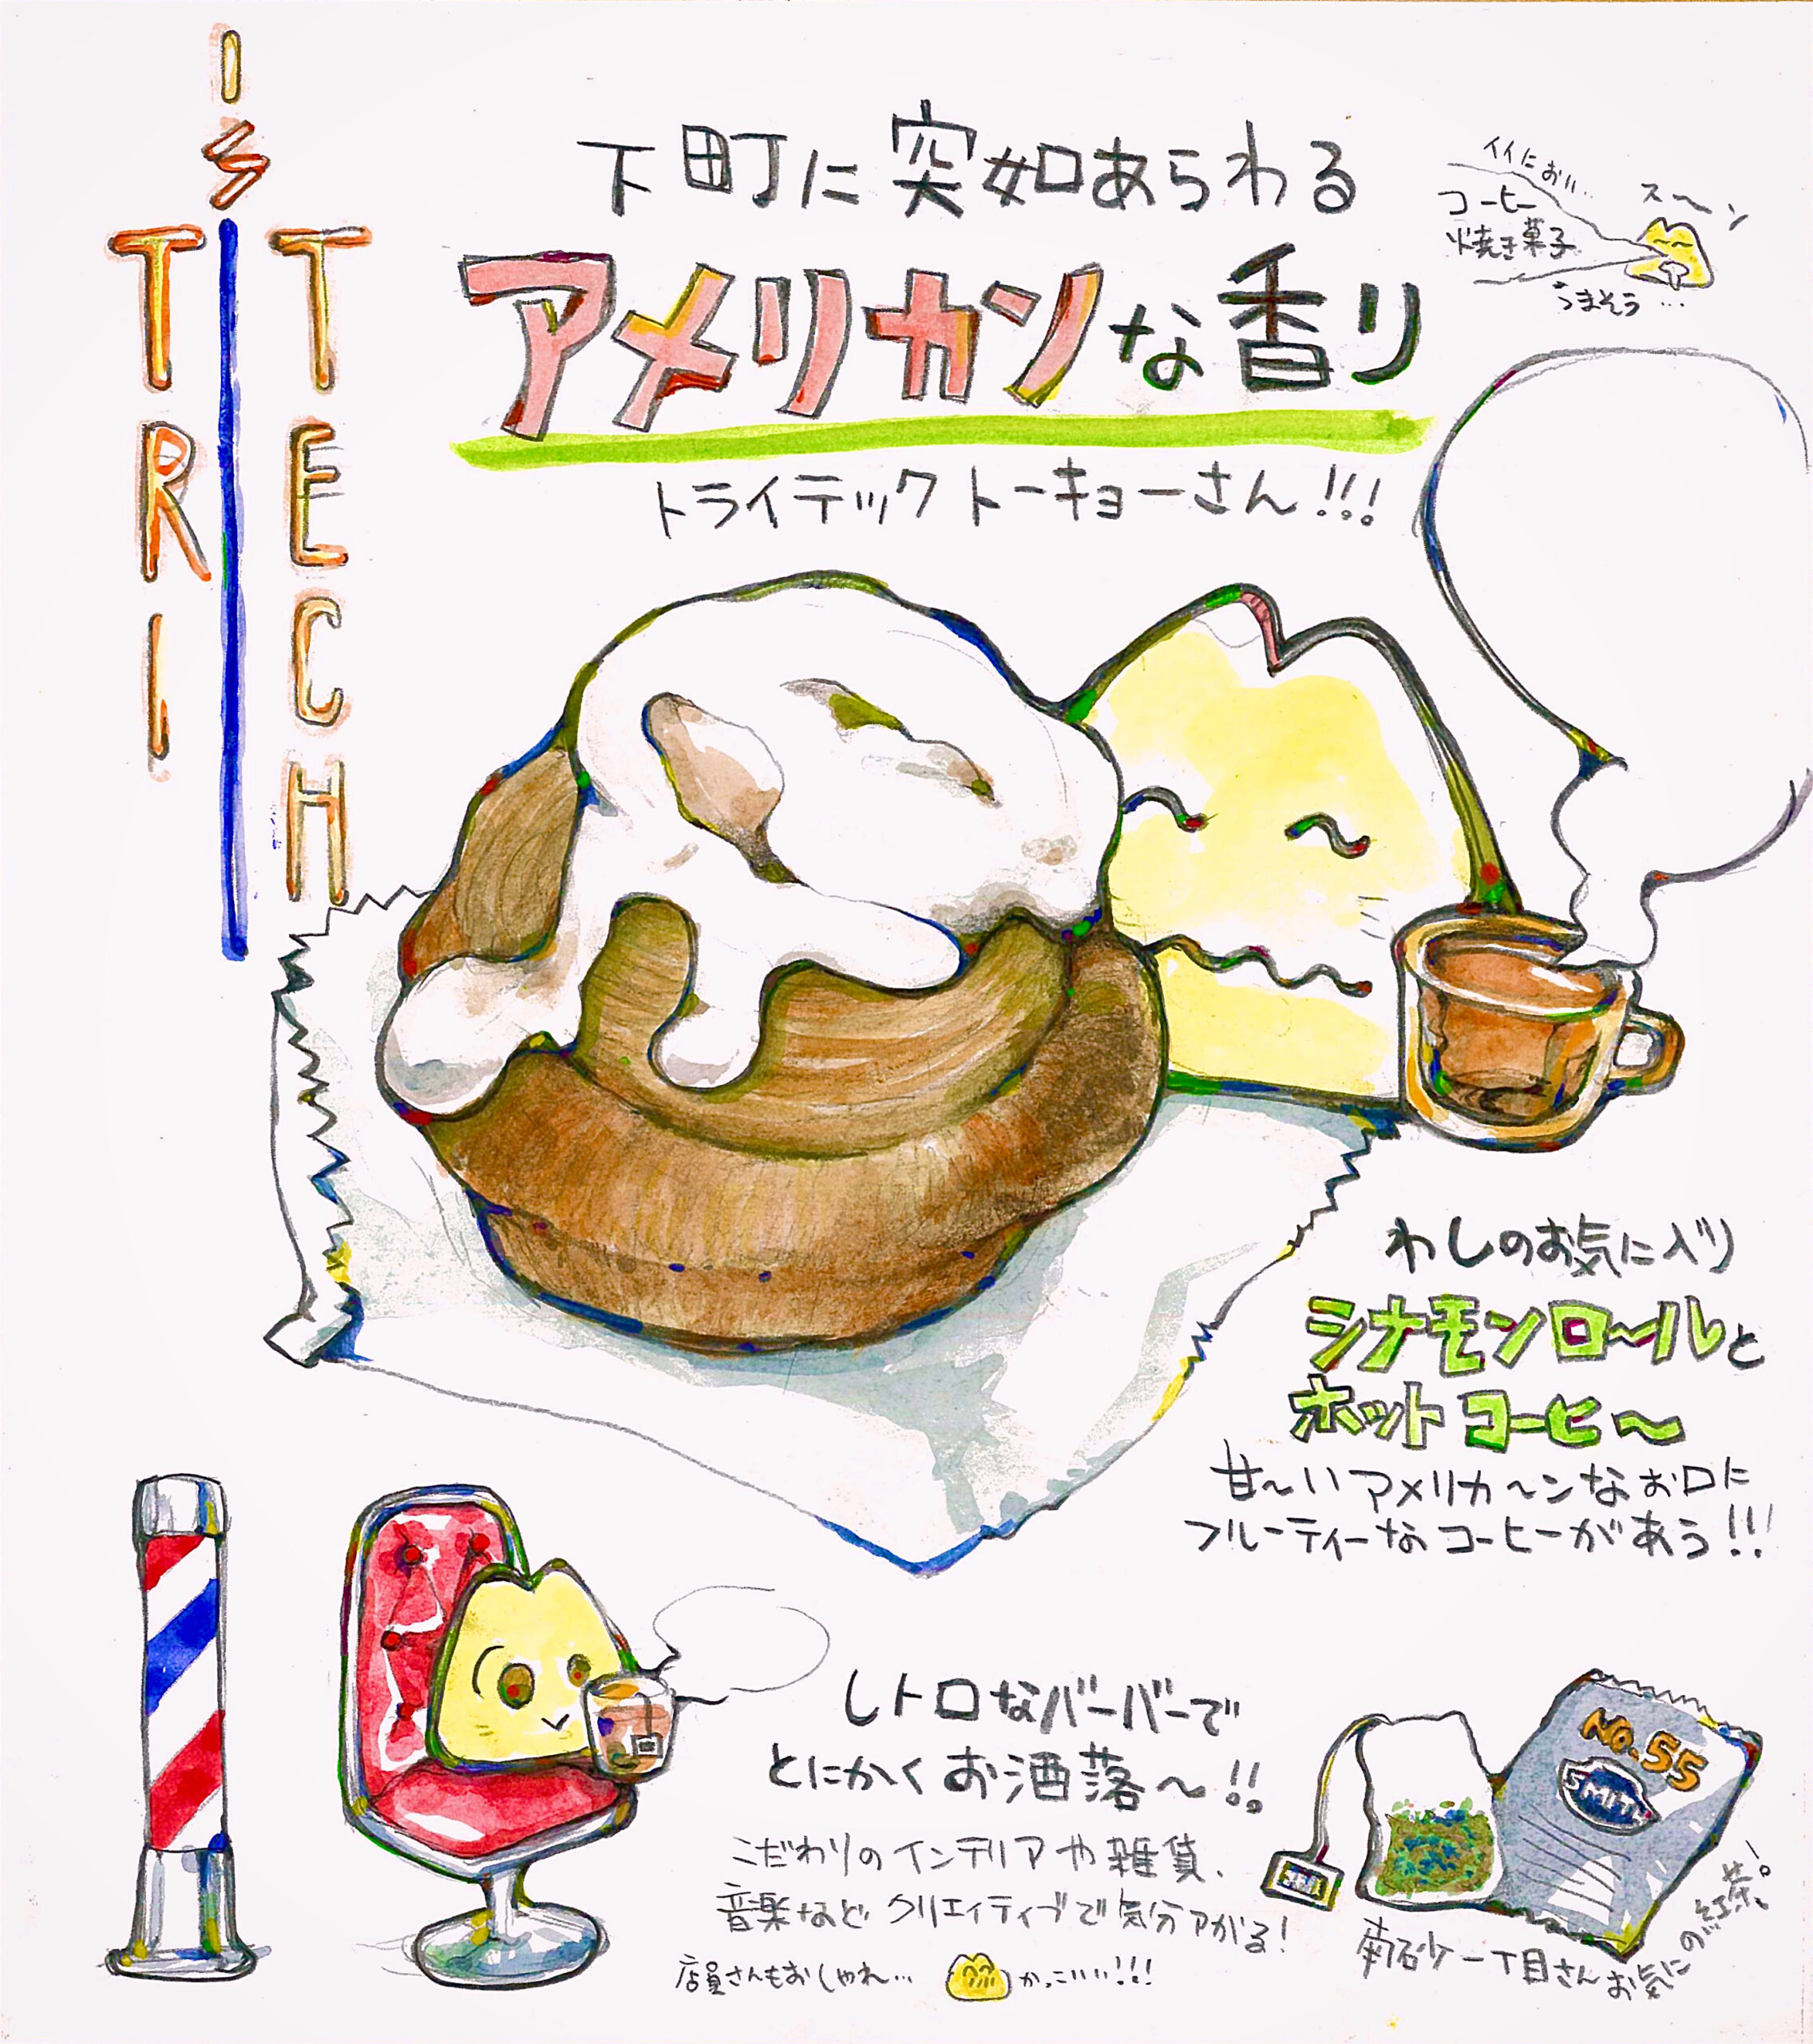 TRI
TECH
下町に突如あらわる
アメリカンな香り
トライテック トーキョーさん!!!
イイにおい…
コーヒー
焼き菓子
スーン
うまそう…
わしのお気に入り
シナモンロ〜ルと
ホットコーヒ〜
甘〜いアメリカ〜ンなお口に
フルーティーなコーヒーがあう!!!
レトロなバーバーで
とにかくお洒落〜!!
こだわりのインテリアや雑貨、
音楽などクリエイティブで気分アがる!
店員さんもおしゃれ…
かっこいい!!!
NO.55
SMITH
南砂一丁目さんお気にの紅茶!